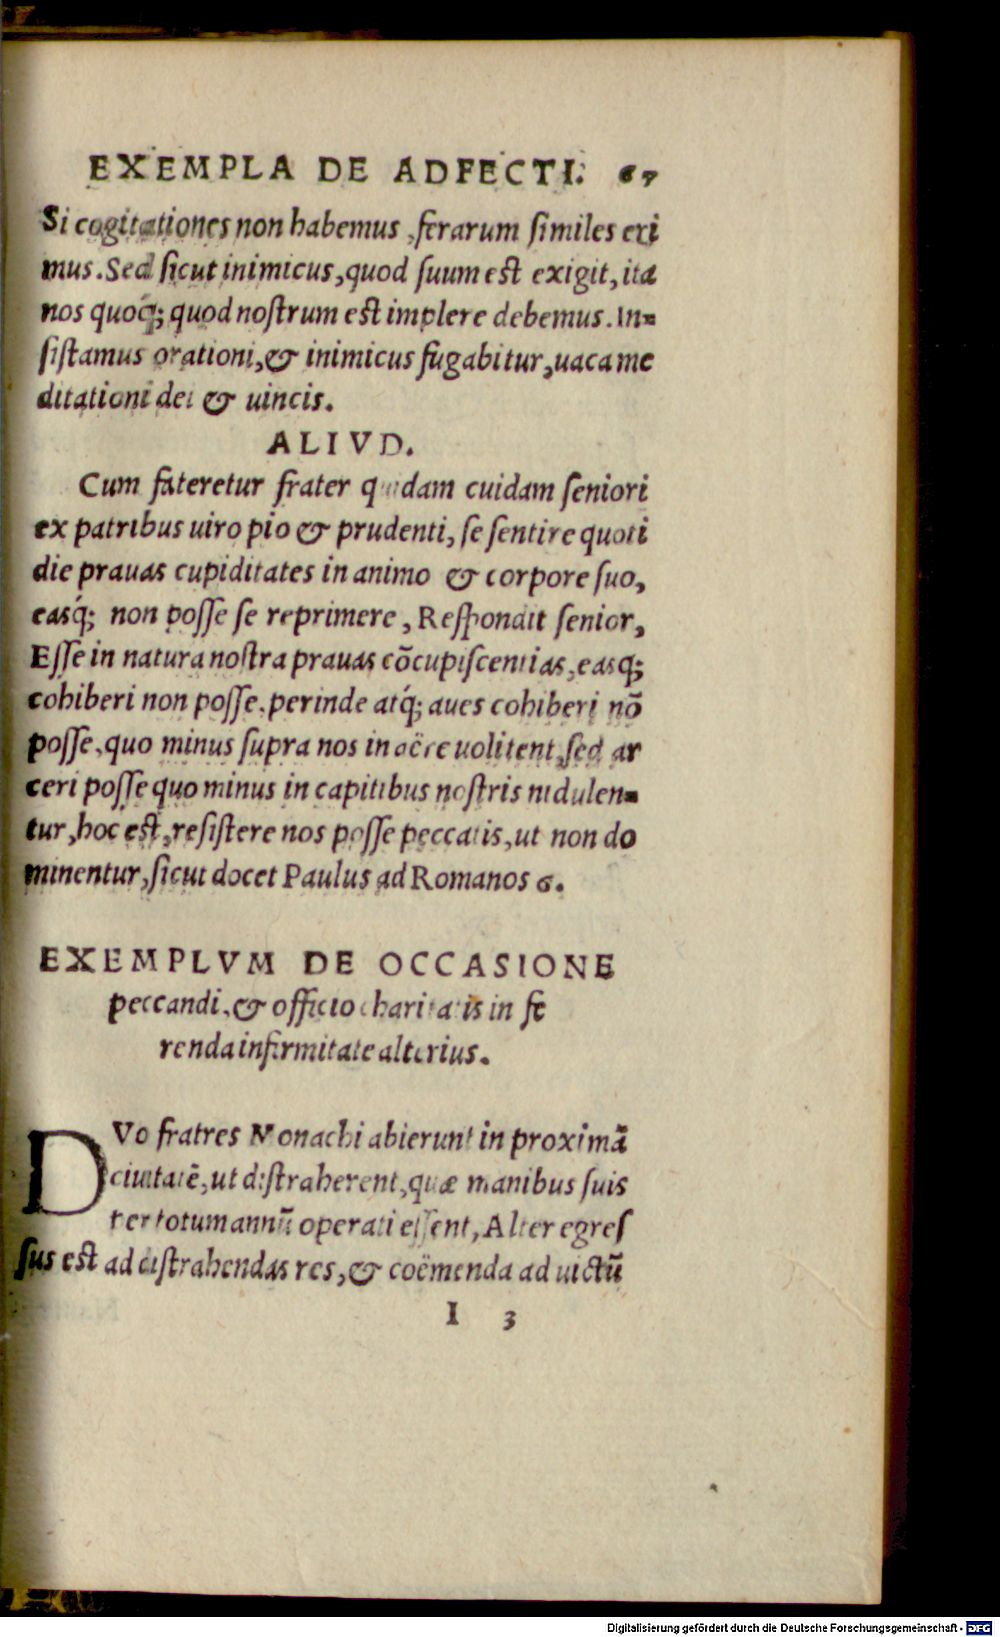 EXEMPLA DE ADFECTI. 67
Si cogitationes non habemus, ferarum ſimiles eri
mus. Sed ſicut inimicus, quod ſuum est exigit, ita
nos quoq́; quod noſtrum est implere debemus. In=
ſiſtamus orationi, & inimicus fugabitur, uaca me
ditationi dei & uincis.
ALIVD.
Cum fateretur frater quidam cuidam ſeniori
ex patribus uiro pio & prudenti, ſe ſentire quoti
die prauas cupiditates in animo & corpore ſuo,
easq́; non poſſe ſe reprimere, Reſpondit ſenior,
Eſſe in natura noſtra prauas cōcupiſcentias, easq́;
cohiberi non poſſe, perinde atq́; aues cohiberi nō
poſſe, quo minus ſupra nos in aëre uolitent, ſed ar
ceri poſſe quo minus in capitibus noſtris nidulen=
tur, hoc est, reſiſtere nos poſſe peccatis, ut non do
minentur, ſicut docet Paulus ad Romanos 6.
EXEMPLVM DE OCCASIONE
peccandi, & officio charitatis in fe
renda infirmitate alterius.
DVo fratres Monachi abierunt in proximā
ciuitatē, ut diſtraherent, quæ manibus ſuis
per totum annū operati eſſent, Alter egreſ
ſus est ad diſtrahendas res, & coëmenda ad uictū
I 3
Digitalisierung gefördert durch die Deutsche Forschungsgemeinschaft - DFG